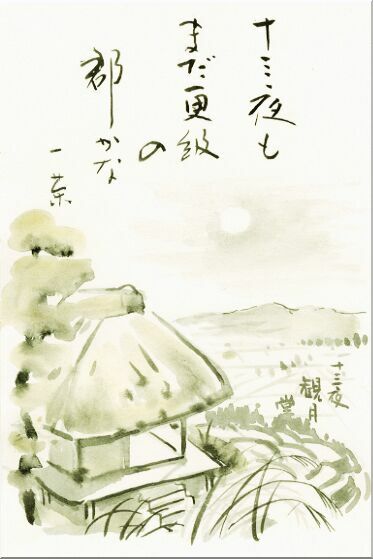 十三夜も
まだ更級
の
郡かな
一茶
十三夜
観月
堂